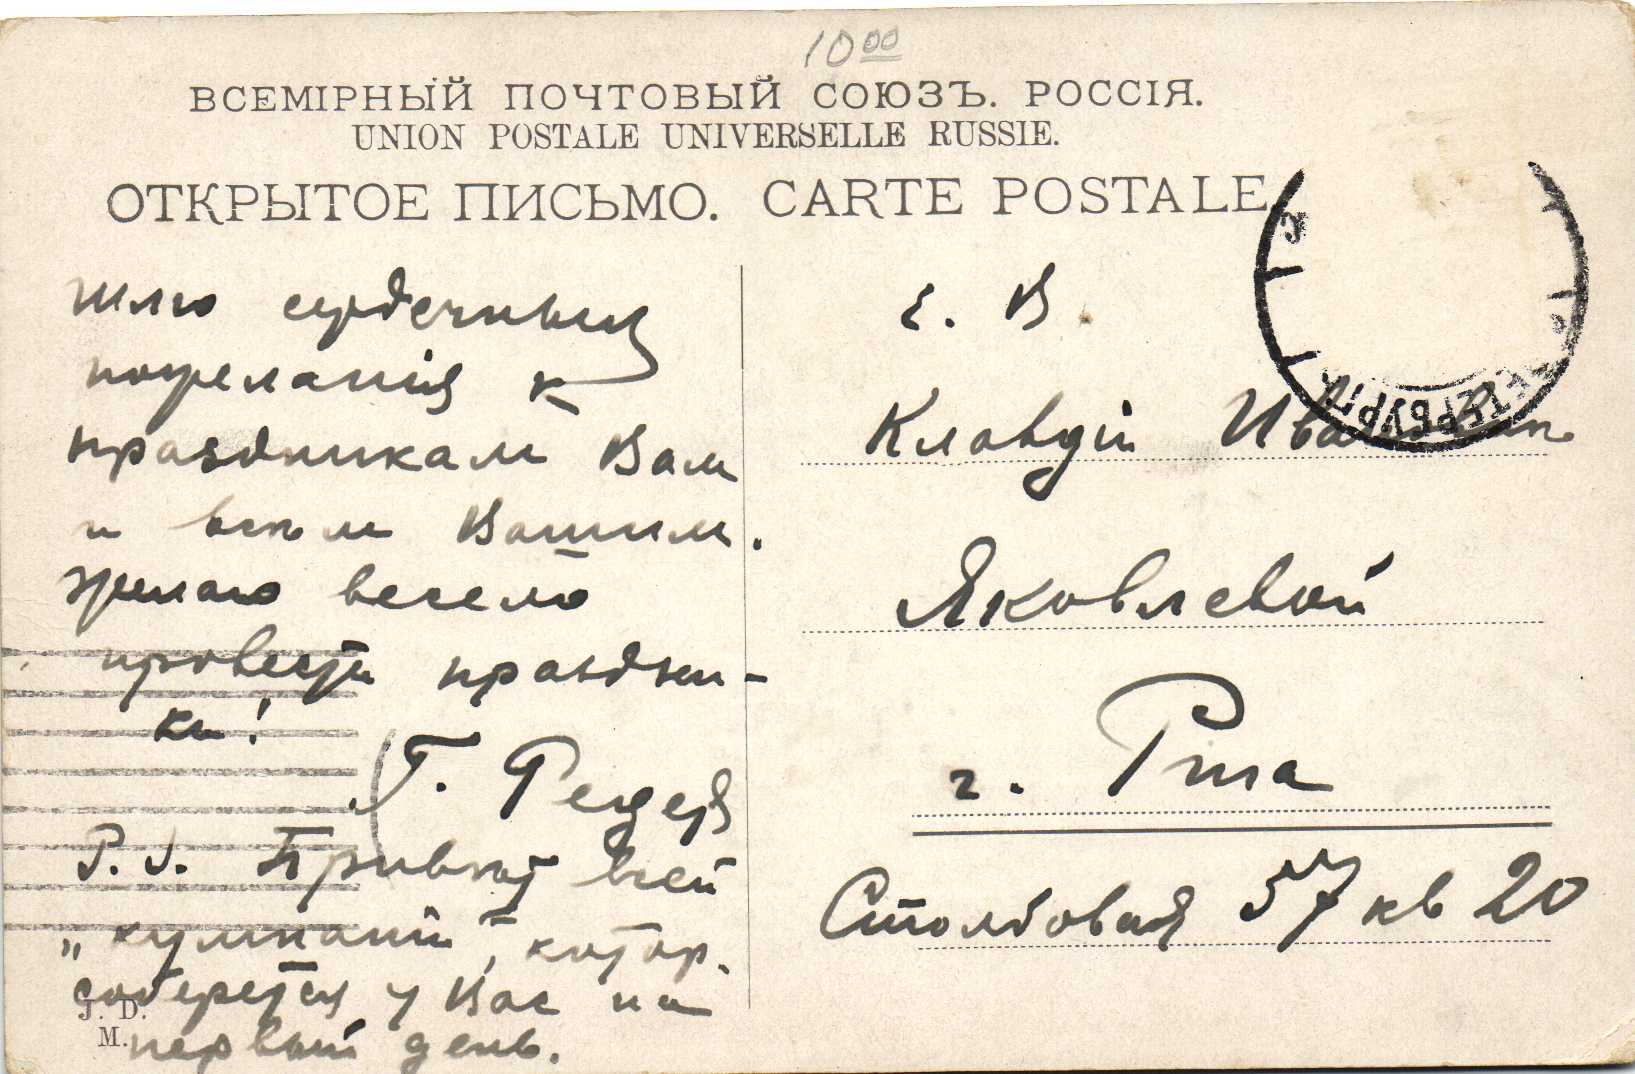 10 00
ВСЕМІРНЫЙ ПОЧТОВЫЙ СОЮЗЪ. РОССІЯ.
UNION POSTALE UNIVERSELLE RUSSIE.
ОТКРЫТОЕ ПИСЬМО. CARTE POSTALE
Шлю сердечныя
пожеланія к
праздникам Вам
и всѣм Вашим.
Желаю весело
провести праздни-
ки!
Г. Редер
P.S. Привѣт всей
„кумпаніи", котор.
соберется у Вас на
первый день.
J. D.
M.
Е. В.
Клавдіи Ивановнѣ
Яковлевой
г. Рига
Столбовая 57 кв 20
ПЕТЕРБУРГЪ